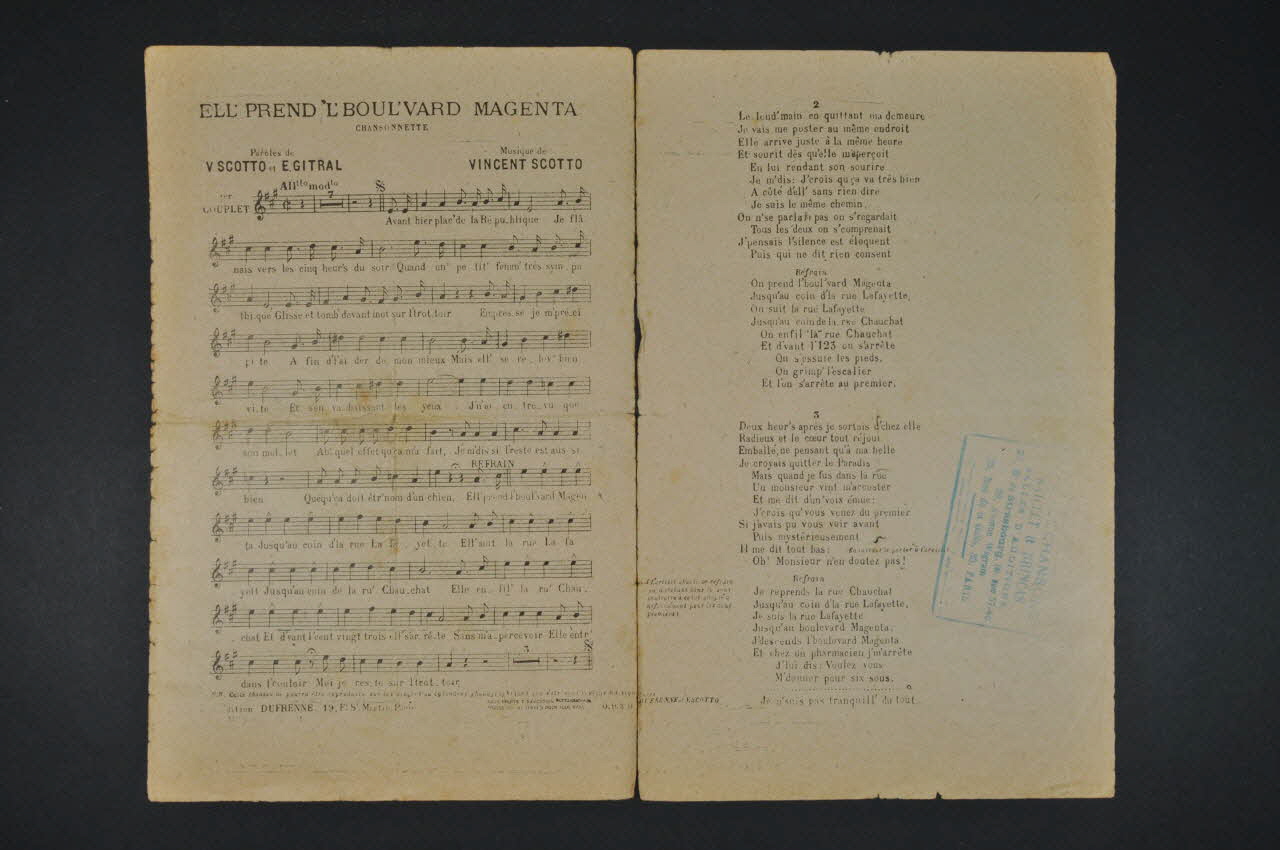 ELL' PREND 'L' BOUL'VARD MAGENTA
CHANSONNETTE
Paroles de
V SCOTTO et E. GITRAL
Musique de
VINCENT SCOTTO
All.tto mod.to
1er
COUPLET
7
Avant hier plac' de la Ré pu_blique Je flâ
nais vers les cinq heur's du soir Quand un' pe tit' femm' très sym_pa
thi que Glisse et tomb' devant moi sur l'trot_toir Empres_se je m'pré_ci
pi_te A fin d'l'ai der de mon mieux Mais ell' se re_lèv' bien
vi_te Et s'en va baissant les yeux J'n'ai en_tre_vu que
son mol_let Ah! quel effet qu'ça m'a fait, Je m'dis si l'reste est aus si
REFRAIN
bien Quequ'ça doit êtr' nom d'un chien. Ell' prend l'boul'vard Magen
ta Jusqu'au coin d'la rue La fa_yet_te Ell' suit la rue La fa
yett Jusqu'au coin de la ru' Chau_chat Elle en_fil' la ru' Chau_
chat Et d'vant l'cent vingt trois ell' s'ar_rê_te Sans m'a_percevoir Elle entr'
3
dans l'couloir Moi je res_te sur l'trot_toir,
N.B. Cette chanson ne pourra être reproduite sur les disques ou cylindres phonographiques
Edition DUFRENNE, 19, Fg St Martin, Paris
DUFRENNE et V.SCOTTO
2
Le lend'main en quittant ma demeure
Je vais me poster au même endroit
Elle arrive juste à la même heure
Et sourit dès qu'elle m'aperçoit
En lui rendant son sourire
Je m'dis: J'crois qu'ça va très bien
A côté d'ell' sans rien dire
Je suis le même chemin.
On n'se parlait pas on s'regardait
Tous les deux on s'comprenait
J'pensais l'silence est éloquent
Puis qui ne dit rien consent
Refrain
On prend l'boul'vard Magenta
Jusqu'au coin d'la rue Lafayette,
On suit la rue Lafayette
Jusqu'au coin de la rue Chauchat
On enfil' "la" rue Chauchat
Et d'vant l'123 on s'arrête
On s'essuie les pieds,
On grimp' l'escalier
Et l'on s'arrête au premier.
3
Deux heur's après je sortais d'chez elle
Radieux et le cœur tout réjoui
Emballé, ne pensant qu'à ma belle
Je croyais quitter le Paradis
Mais quand je fus dans la rue
Un monsieur vint m'accoster
Et me dit d'un' voix émue:
J'crois qu'vous venez du premier
Si j'avais pu vous voir avant
Puis mystérieusement
Il me dit tout bas:
Oh! Monsieur n'en doutez pas!
Refrain
Je reprends la rue Chauchat
Jusqu'au coin d'la rue Lafayette,
Je suis la rue Lafayette
Jusqu'au boulevard Magenta.
J'descends l'boulevard Magenta
Et chez un pharmacien j'm'arrête
J'lui dis: Voulez vous
M'donner pour six sous.
Je n'suis pas tranquill' du tout.